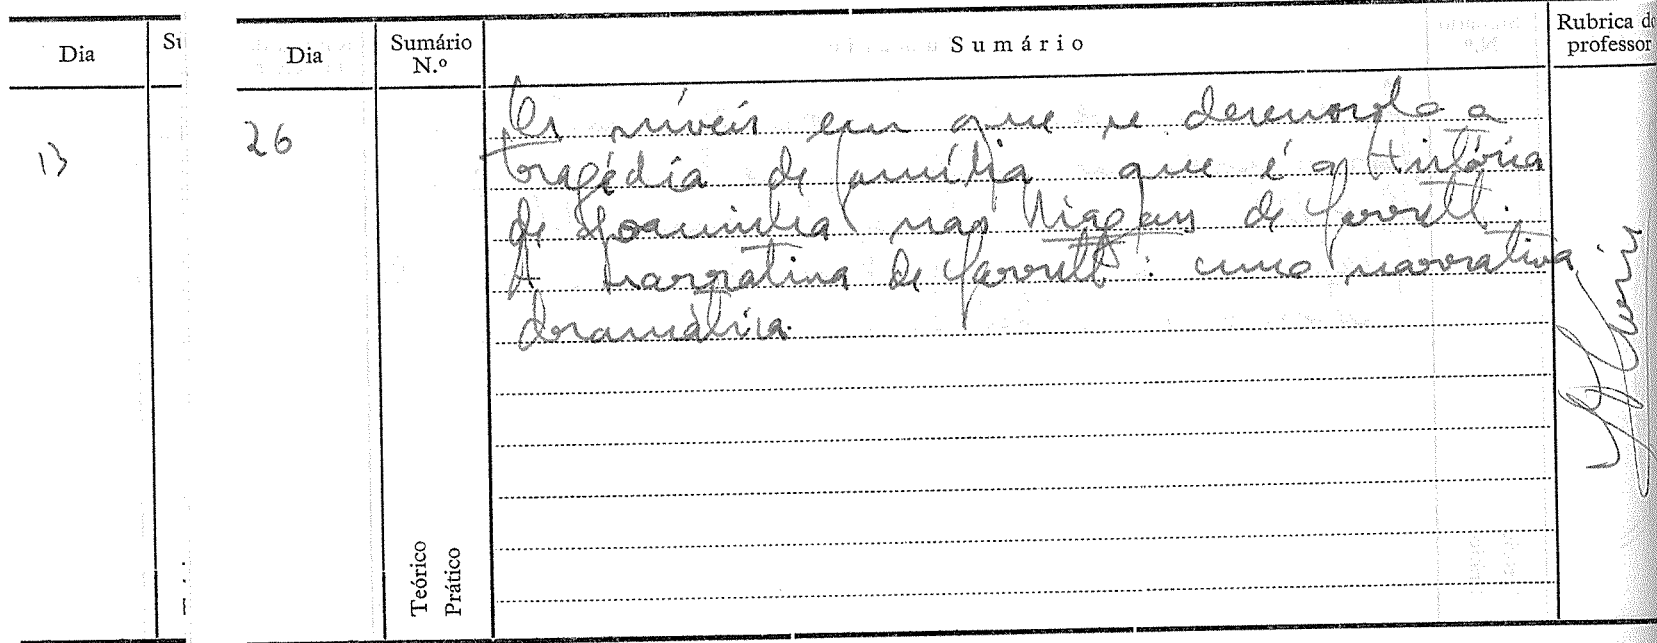 Dia
13
Dia
Sumário
N.º
Sumário
Rubrica do
professor
26
Os níveis em que se desenrola a
tragédia de família que é a História
de Joaninha nas Viagens de Garrett.
A narrativa de Garrett: uma narrativa
dramática.
Teórico
Prático